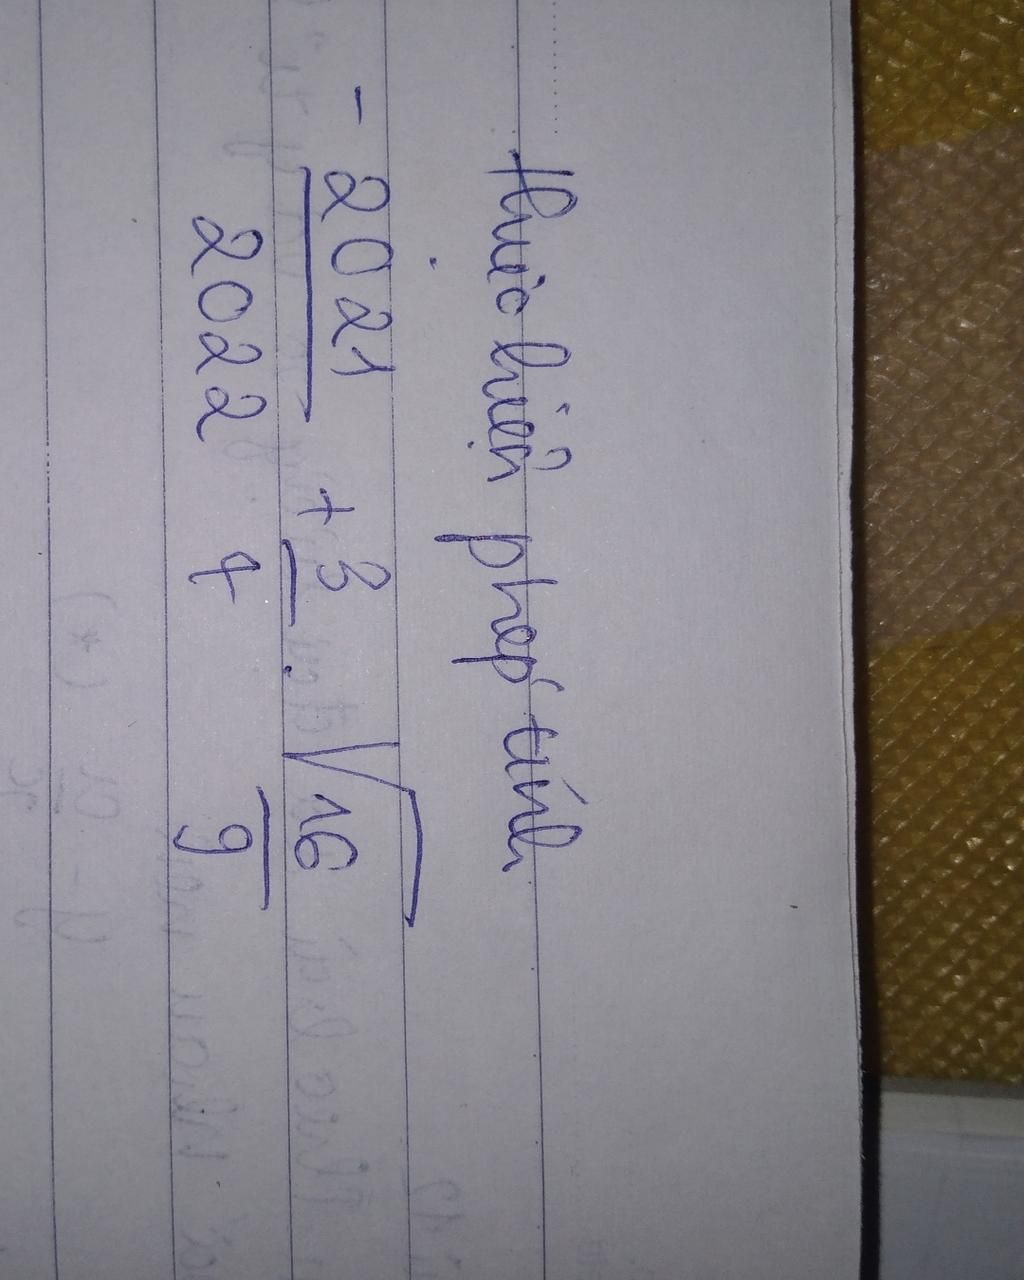 thực hiện phép tính
- 2021/2022 + 3/4 . √16/9